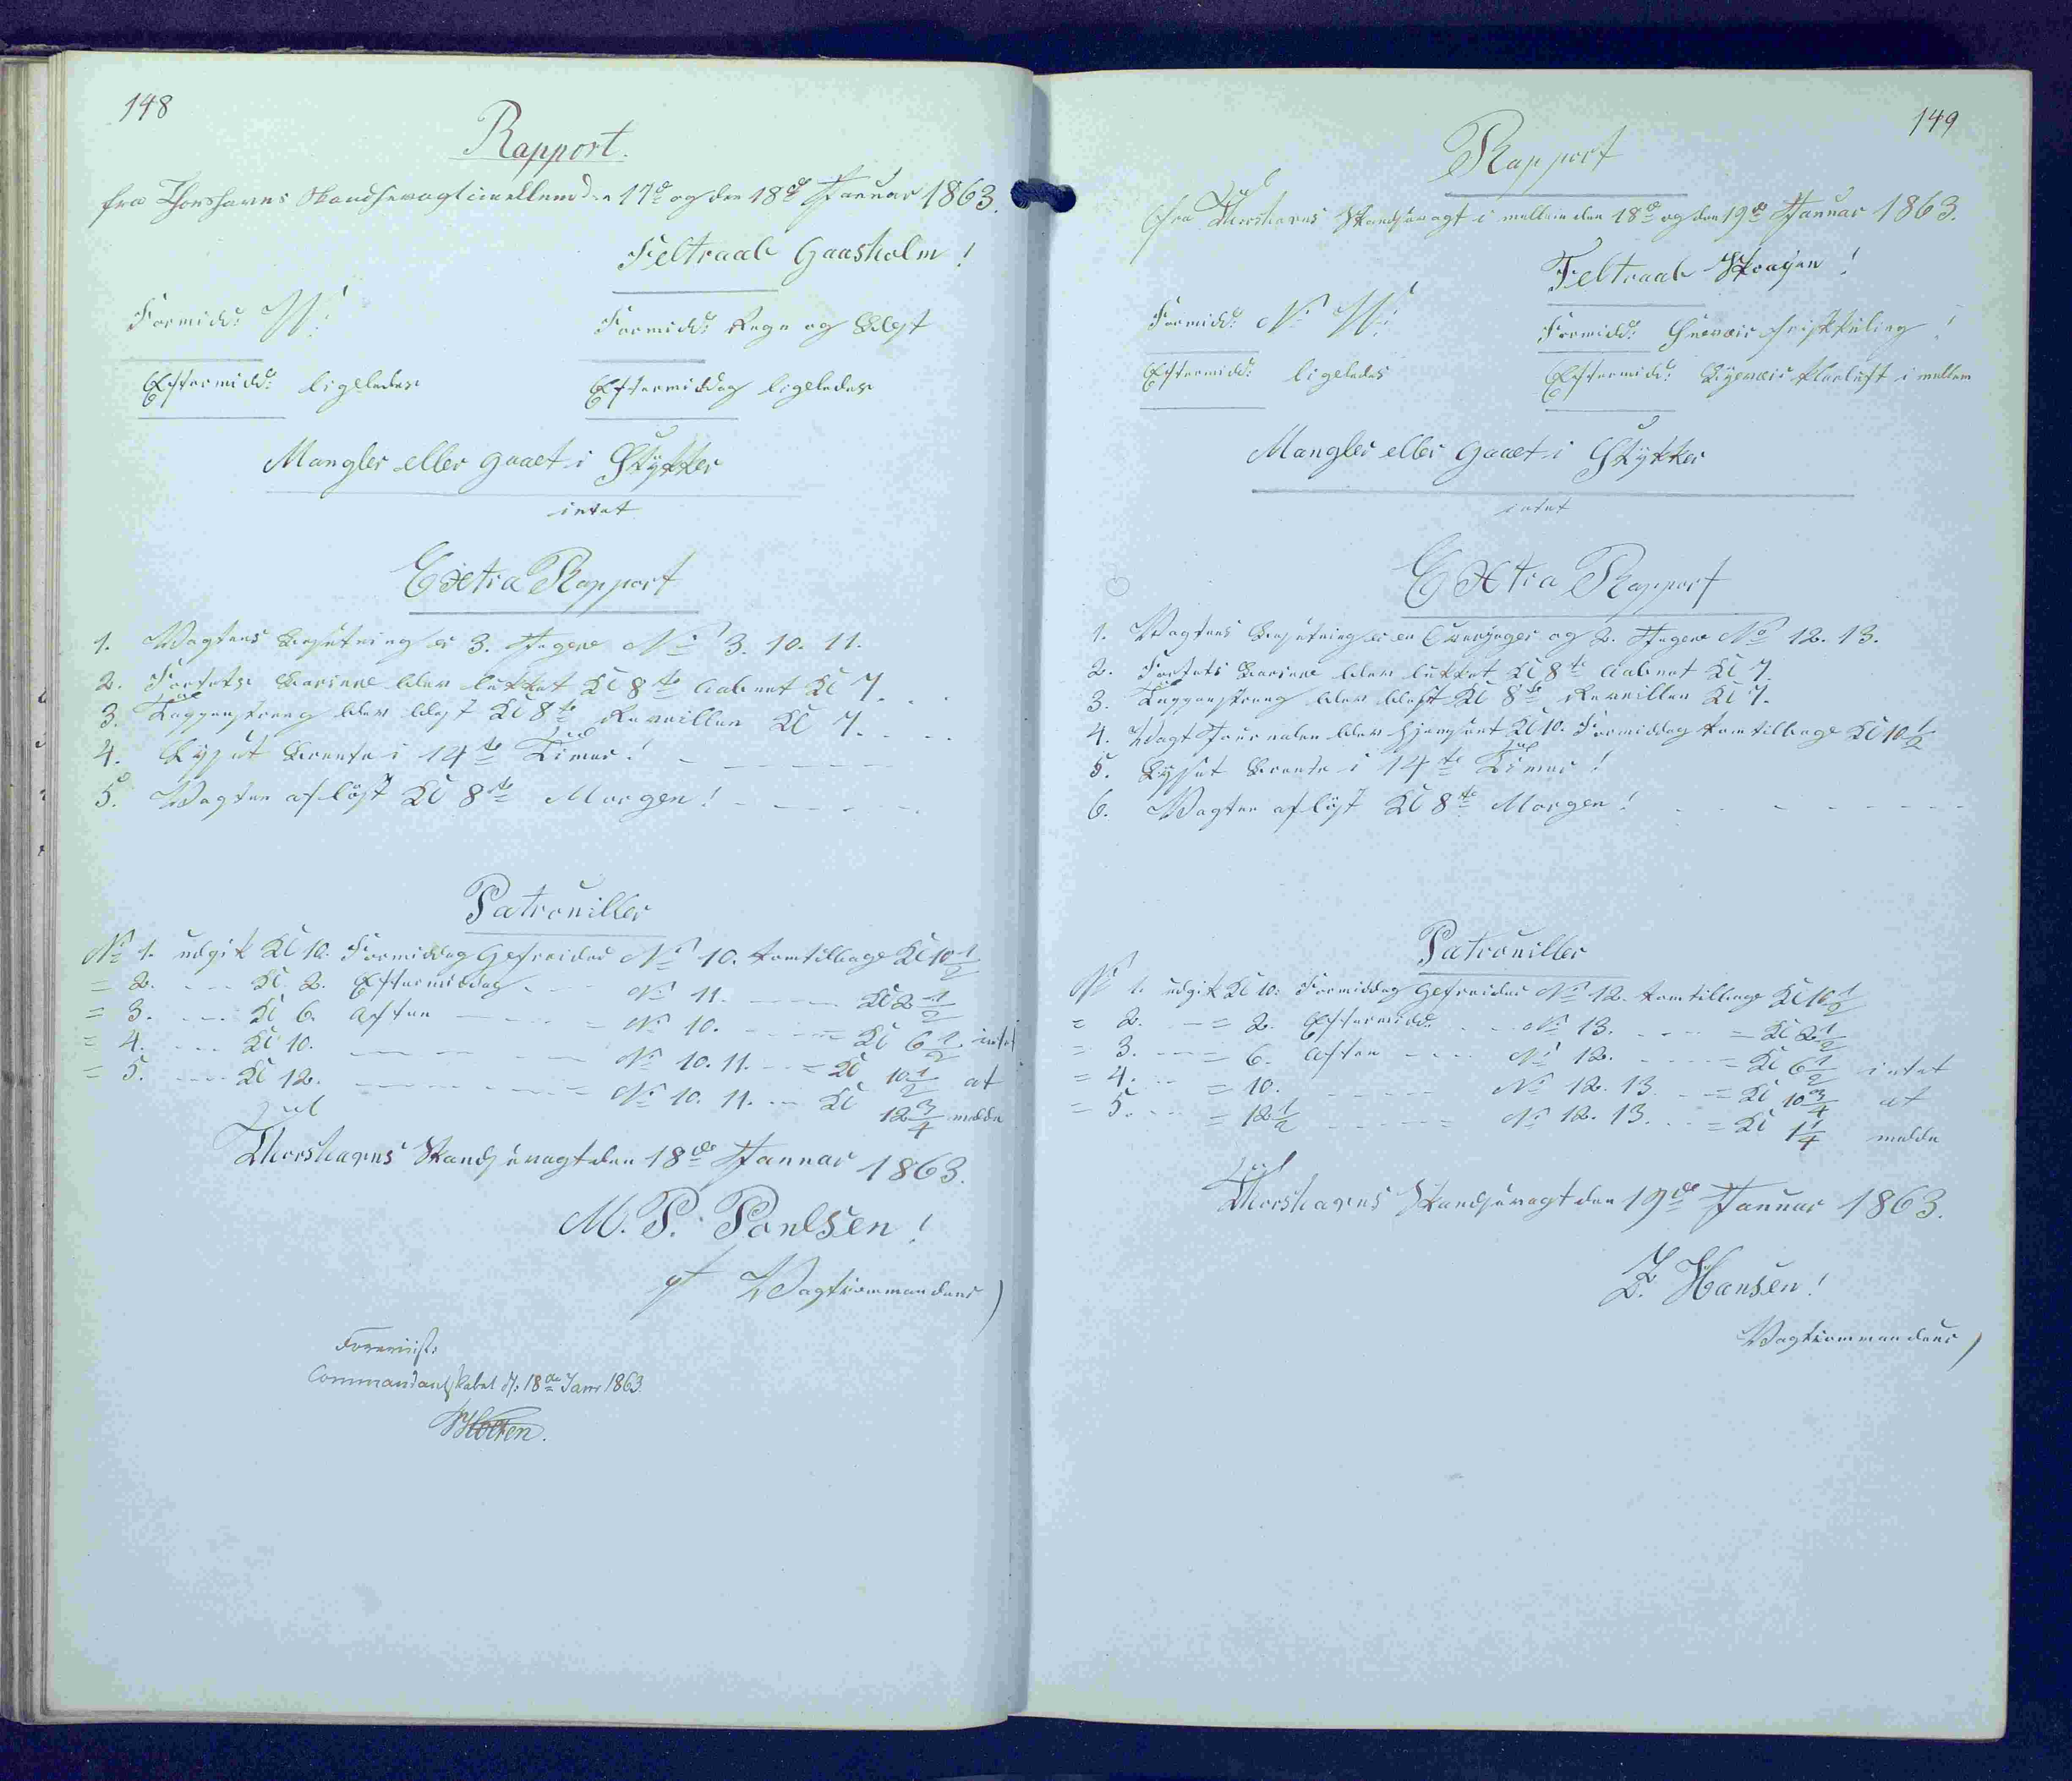 148
Rapport.
fra Thorshavns Skandsevagt imellem den 17de og den 18de Januar 1863.
Feltraab Gaasholm!
Formidd:
Formidd: Regn og Blæst
Eftermidd: ligeledes
Eftermiddag ligeledes
Mangler eller gaaet i Stykker
intet
Extra Rapport
1. Vagtens Besætning er 3. Jægere No 3. 10. 11.
2. Fortets Barriere blev lukket Kl 8te aabnet Kl 7.
3. Tappenstreng blev blæst Kl 8te Reveillen Kl 7.
4. Lyset brente i 14te Timer!
5. Vagten afløst Kl 8te Morgen!
Patrouiller
No 1. udgik Kl 10. Formiddag Gefreider No 10. kom tilbage Kl 10 1/2
= 2. Kl. 2. Eftermiddag No 11. Kl 2 1/2
= 3. Kl 6. Aften = No 10. = Kl 6 1/2 intet
= 4. Kl 10. No 10. 11. = Kl 10 1/2 at
= 5. Kl 12. = No 10. 11. Kl 12 3/4 melde
Thorshavns Skandsevagt den 18de Januar 1863.
M. P. Poulsen!
Vagtkommandeur
Foreviist:
Commandantskabet d. 18de Janr 1863.
149
Rapport
fra Thorshavns Skandsevagt i mellem den 18de og den 19de Januar 1863.
Feltraab Skagen!
Formidd: No
Formidd: Sneveir frisk Kuling!
Eftermidd: ligeledes
Eftermidd: Bygeveir klarluft i mellem
Mangler eller gaaet i Stykker
intet
Extra Rapport
1. Vagtens Besætning er en Overjæger og 2. Jægere No 12. 13.
2. Fortets Barriere blev lukket Kl 8te aabnet Kl 7.
3. Tappenstreng blev blæst Kl 8te Reveillen Kl 7.
4. Vagt Journalen blev hjemsent Kl 10. Formiddag kom tilbage Kl 10 1/2
5. Lyset brente i 14te Timer!
6. Vagten afløst Kl 8te Morgen!
Patrouiller
No 1. udgik Kl 10. Formiddag Gefreider No 12. kom tilbage Kl 10 1/2
= 2. = 2. Eftermidd. No 13. = Kl 2 1/2
= 3. = 6. Aften No 12. = Kl 6 1/2 intet
= 4. = 10. No 12. 13. = Kl 10 3/4 at
= 5. = 12 1/2 = No 12. 13. = Kl 1 1/4 melde
Thorshavns Skandsevagt den 19de Januar 1863.
Z. Hansen!
Vagtkommandeur